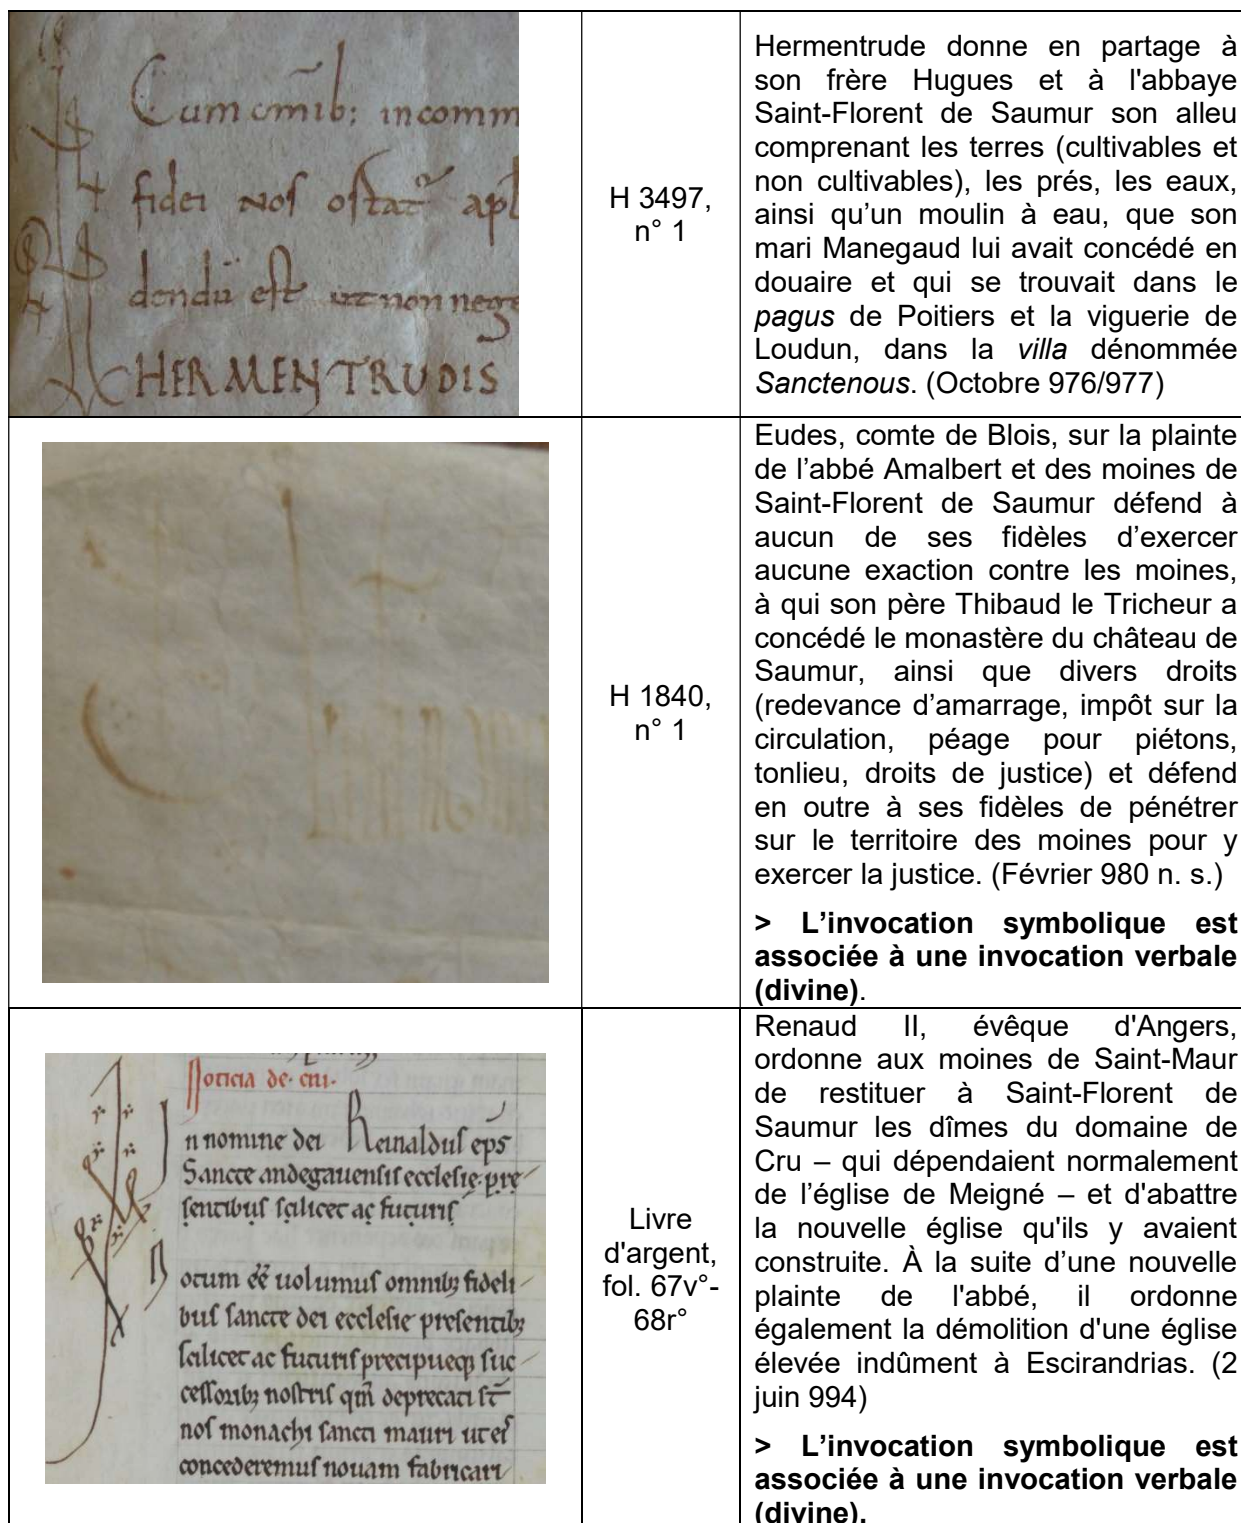 Cum omib; incomm
fidei nos ostat apl
dendū est ut non nege
HERMENTRUDIS
H 3497,
n° 1
Hermentrude donne en partage à
son frère Hugues et à l'abbaye
Saint-Florent de Saumur son alleu
comprenant les terres (cultivables et
non cultivables), les prés, les eaux,
ainsi qu'un moulin à eau, que son
mari Manegaud lui avait concédé en
douaire et qui se trouvait dans le
pagus de Poitiers et la viguerie de
Loudun, dans la villa dénommée
Sanctenous. (Octobre 976/977)
H 1840,
n° 1
Eudes, comte de Blois, sur la plainte
de l’abbé Amalbert et des moines de
Saint-Florent de Saumur défend à
aucun de ses fidèles d’exercer
aucune exaction contre les moines,
à qui son père Thibaud le Tricheur a
concédé le monastère du château de
Saumur, ainsi que divers droits
(redevance d’amarrage, impôt sur la
circulation, péage pour piétons,
tonlieu, droits de justice) et défend
en outre à ses fidèles de pénétrer
sur le territoire des moines pour y
exercer la justice. (Février 980 n. s.)
> L’invocation symbolique est
associée à une invocation verbale
(divine).
Noticia de cru.
In nomine dei Reinaldus eps
Sancte andegauensis ecclesie pre
sentibus scilicet ac futuris
Notum eē uolumus omnib; fideli
bus sancte dei ecclesie presentib;
scilicet ac futuris precipueq; suc
cessorib; nostris qm̄ deprecati st̄
nos monachi sancti mauri ut eis
concederemus nouam fabricari
Livre
d'argent,
fol. 67v°-
68r°
Renaud II, évêque d'Angers,
ordonne aux moines de Saint-Maur
de restituer à Saint-Florent de
Saumur les dîmes du domaine de
Cru – qui dépendaient normalement
de l’église de Meigné – et d'abattre
la nouvelle église qu'ils y avaient
construite. À la suite d’une nouvelle
plainte de l'abbé, il ordonne
également la démolition d'une église
élevée indûment à Escirandrias. (2
juin 994)
> L’invocation symbolique est
associée à une invocation verbale
(divine).